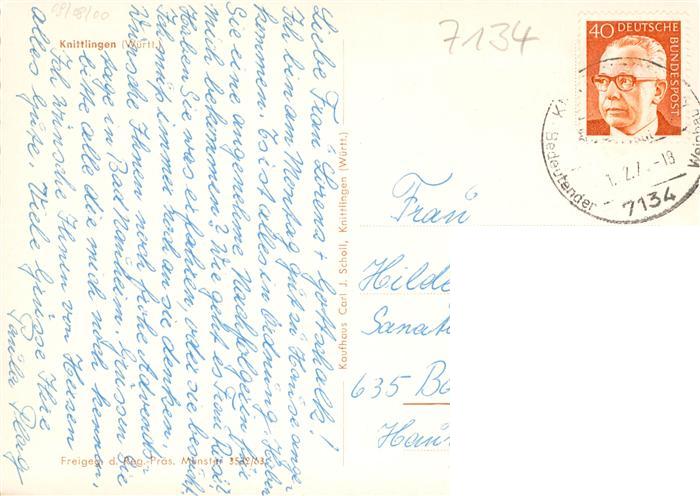 09/08/00
Knittlingen (Württ.)
7134
40 DEUTSCHE
BUNDESPOST
K
Bedeutender
Weinbau
1. 2. 7 -18
7134
Liebe Frau + Gottschalk!
Ich bin am Montag gut zu Hause ange
kommen. Es ist alles in Ordnung. Haben
Sie eine angenehme Nachfolgerin für
mich bekommen? Wie geht es Frau
Haben Sie was erfahren, oder sie besucht.
Ich muß immer an sie denken.
Wünsche Ihnen noch frohe Advents
tage in Bad Nauheim. Grüssen Sie
bitte alle die mich noch kennen,
Ich wünsche Ihnen von Herzen
alles Gute. Viele Grüsse Ihre
Kaufhaus Carl J. Scholl, Knittlingen (Württ.)
Frau
Hilde
Sanat
635 Ba
Hau
Freigeg. d. Reg.-Präs. Münster 3592/63